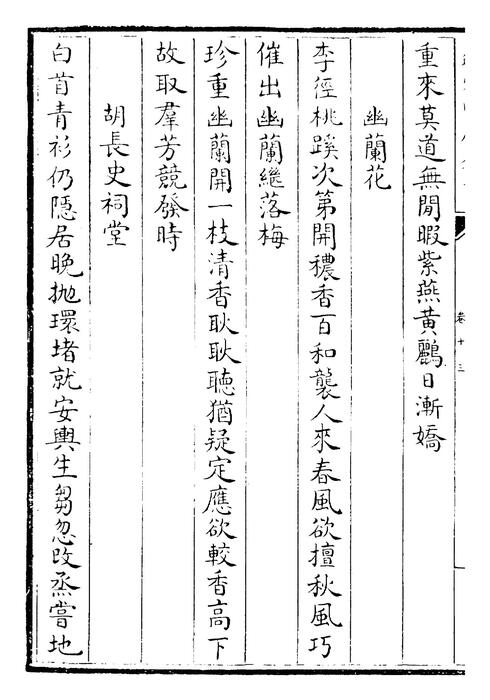 重來莫道無閒暇紫燕黃鸝日漸嬌
幽蘭花
李徑桃蹊次第開穠香百和襲人來春風欲擅秋風巧
催出幽蘭繼落梅
珍重幽蘭開一枝清香耿耿聽猶疑定應欲較香高下
故取羣芳競發時
胡長史祠堂
白首青衫仍隱居晚拋環堵就安輿生芻忽改烝嘗地
卷十三